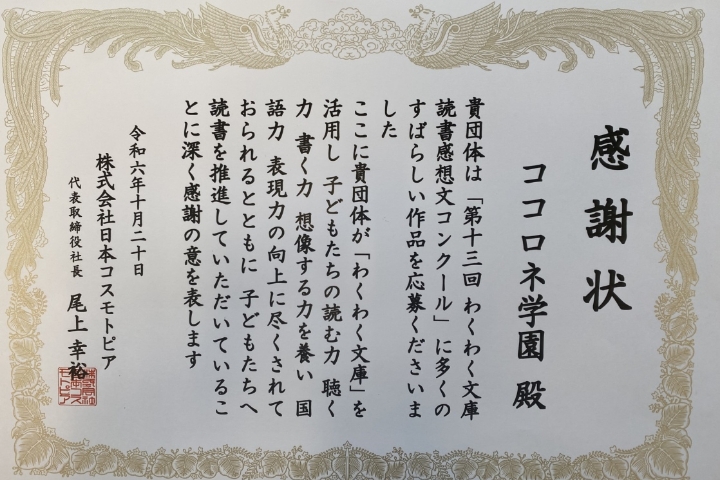 感謝状
ココロネ学園 殿
貴団体は「第十三回 わくわく文庫
読書感想文コンクール」に多くの
すばらしい作品を応募くださいま
した
ここに貴団体が「わくわく文庫」を
活用し 子どもたちの読む力 聴く
力 書く力 想像する力を養い 国
語力 表現力の向上に尽くされて
おられるとともに 子どもたちへ
読書を推進していただいているこ
とに深く感謝の意を表します
令和六年十月二十日
株式会社日本コスモトピア
代表取締役社長 尾上 幸裕
株式会社日本コスモトピア